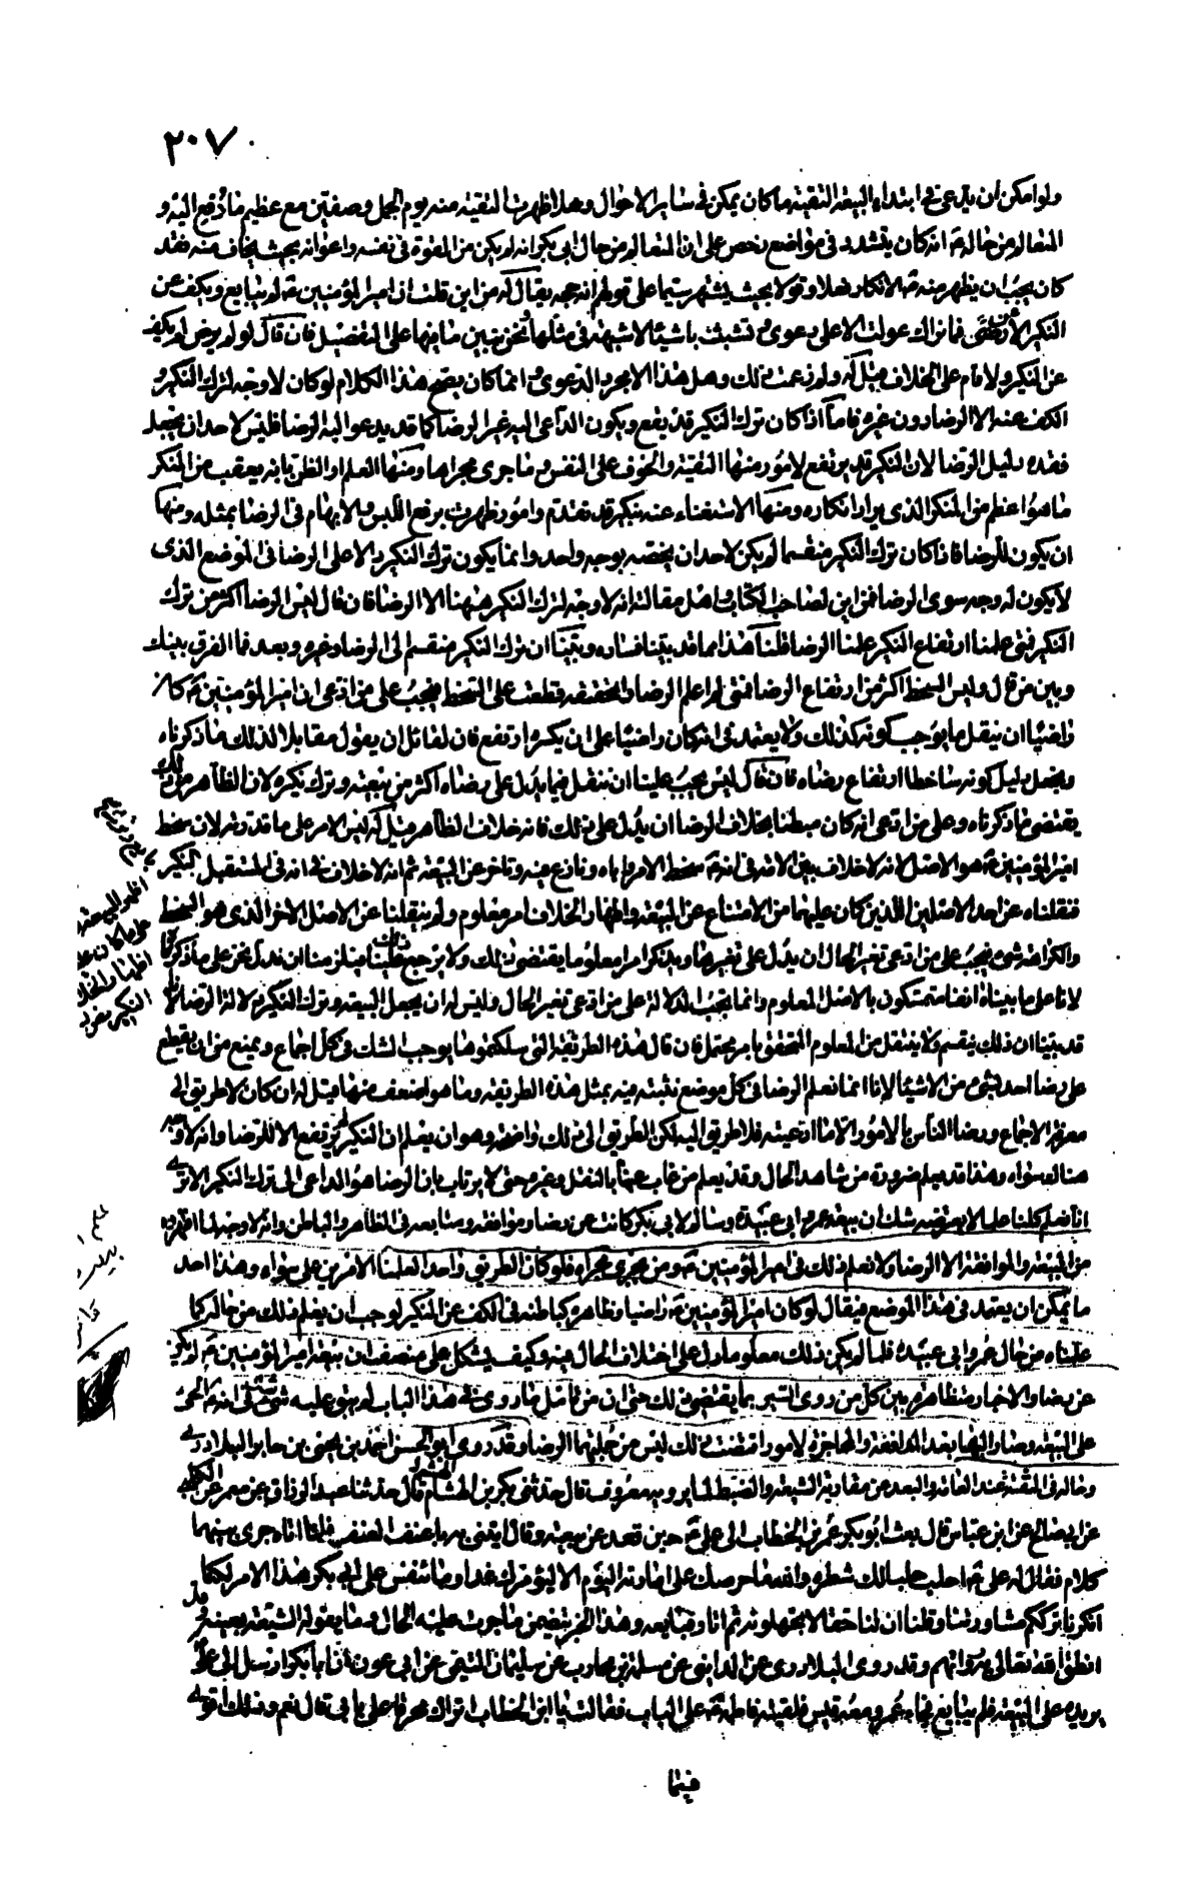 ٢٠٧
ولو امكن ان يدعى في ابتداء البيعة التقية ما كان يمكن في ساير الاحوال وهلا اظهرت التقية منه يوم الجمل وصفين مع عظيم ما دفع اليه و
المتعالم من حاله ع انه كان يتشدد في مواضع نخص على ان المتعالم من حال ابى بكر انه لم يكن من القوة في نفسه واعوانه بحيث يخاف منه فقد
كان يجب ان يظهر منه ع الانكار فعلا وقولا بحيث يشتهر سيما على قولهم انه حجه يقال له من اين قلت ان امير المؤمنين ع لم يبايع ويكف عن
النكير الا عن رضى فما نراك عولت الا على دعوى و تشبثت باشياء لا شبهة في مثلها نحن نبين ما فيها على التفصيل فان قال لو لم يرض لم يكف
عن النكير ولاقام على الخلاف قيل له ولم زعمت ذلك وهل هذا الا مجرد الدعوى و انما كان يصح هذا الكلام لو كان لا وجه لترك النكير و
الكف عنه الا الرضا دون غيره فاما اذا كان ترك النكير قد يقع ويكون الداعى اليه غير الرضا كما قد يدعو اليه الرضا فليس لاحد ان يجعل
فقده دليل الرضا لان النكير قد يرتفع لامور منها التقية والخوف على النفس وما جرى مجراها ومنها العلم او الظن بانه يعقب من المنكر
ما هو اعظم من المنكر الذى يراد انكاره ومنها الاستغناء عنه بنكير قد تقدم وامور ظهرت برفع اللبس والابهام في الرضا بمثله ومنها
ان يكون للرضا فاذا كان ترك النكير منقسما لم يكن لاحد ان يخصه بوجه واحد وانما يكون ترك النكير دلالة على الرضا في الموضع الذى
لا يكون له وجه سوى الرضا فمن اين لصاحب الكتاب واهل مقالته انه لا وجه لترك النكير هيهنا الا الرضا فان قال ليس الرضا اكثر من ترك
النكير فمتى علمنا ارتفاع النكير علمنا الرضا قلنا هذا مما قد بينا فساده وبينا ان ترك النكير منقسم الى الرضا وغيره وبعد فما الفرق بينك
وبين من قال وليس السخط اكثر من ارتفاع الرضا فمتى لم اعلم الرضا واتحققه قطعت على السخط فيجب على من ادعى ان امير المؤمنين ع كان
راضيا ان ينقل ما يوجب كونه كذلك ولا يعتمد في انه كان راضيا على ان نكيره ارتفع فان لقائل ان يقول مقابلا لذلك ما ذكرناه
ويجعل دليل كونه ساخطا ارتفاع رضاه فان قال ليس يجب علينا ان ننقل فيما يدل على رضاه اكثر من بيعته وترك نكيره لان الظاهر من ذلك
يقتضى ما ذكرناه وعلى من ادعى انه كان مبطنا بخلاف الرضا ان يدل على ذلك فانه خلاف الظاهر قيل له ليس الامر على ما قدرته لان سخط
امير المؤمنين ع هو الاصل لانه لا خلاف بين الامة في انه ع سخط الامر واباه ونازع فيه وتاخر عن البيعة ثم انه لا خلاف في انه في المستقبل
فنقلناه عن احد الاصلين اللذين كان عليهما من الامتناع عن البيعة واظهار الخلاف امر معلوم ولم ينقلنا عن الاصل الاخر الذى هو السخط
والكراهة شىء فيجب على من ادعى تغير الحال ان يدل على تغيرها ويذكر امرا معلوما يقتضى ذلك ولا يرجع علينا فيلزمنا ان ندل نحن على ما ذكرناه
لانا على ما بيناه انفا متمسكون بالاصل المعلوم وانما تجب الدلالة على من ادعى تغير الحال وليس له ان يجعل البيعة وترك النكير دلالة الرضا لانا
قد بينا ان ذلك ينقسم ولا ينتقل من المعلوم المتحقق بامر محتمل فان قال هذه الطريقة التى سلكتموها يوجب الشك في كل اجماع و يمنع من ان يقطع
على رضا احد بشىء من الاشياء لانا انما نعلم الرضا في كل موضع نثبته فيه بمثل هذه الطريقة وما هو اضعف منها قيل له ان كان لا طريق الى
معرفة الاجماع ورضا الناس بالامور الا ما ادعيته فلا طريق اليه لكن الطريق الى ذلك واضحة وهو ان يعلم ان النكير لم يرتفع الا للرضا وانه لا وجه
هناك سواه وهذا قد يعلم ضرورة من شاهد الحال وقد يعلم من غاب عنها بالنقل وغيره حتى لا يرتاب بان الرضا هو الداعى الى ترك النكير الا ترى
انا نعلم كلنا علما لا يعترضه شك ان بيعة عمر وابى عبيدة وسالم لابى بكر كانت عن رضا وموافقة ومتابعة في الظاهر والباطن وانه لا وجه لما اظهروه
من البيعة والموافقة الا الرضا ولا نعلم ذلك في امير المؤمنين ع ومن يجرى مجراه فلو كان الطريق واحدا لعلمنا الامرين على سواء وهذا احد
ما يمكن ان يعتمد في هذا الموضع فيقال لو كان امير المؤمنين ع راضيا وظاهره كباطنه في الكف عن النكير لوجب ان يعلم ذلك من حاله كما
علمناه من حال عمر وابى عبيدة فلما لم يكن ذلك معلوما دل على اختلاف الحال فيه وكيف يشكل على منصف ان بيعة امير المؤمنين ع لم تكن
عن رضا والاخبار متظاهرة بين كل من روى السير بما يقتضى ذلك حتى ان من تامل ما روى في هذا الباب لم يبق عليه شك في انه ع الجئ
على البيعة وصار اليها بعد المدافعة والمحاجزة لامور اقتضت ذلك ليس من جملتها الرضا وقد روى ابو الحسن احمد بن يحيى بن جابر البلاذرى
وحاله في الثقة عند العامة والبعد عن مقاربة الشيعة والضبط لما يرويه معروفة قال حدثنى بكر بن الهيثم قال حدثنا عبد الرزاق عن معمر عن الكلبى
عن ابى صالح عن ابن عباس قال بعث ابو بكر عمر بن الخطاب الى على ع حين قعد عن بيعته وقال ايتنى به باعنف العنف فلما اتاه جرى بينهما
كلام فقال له على ع احلب حلبا لك شطره والله ما حرصك على امارته اليوم الا ليؤمرك غدا وما ننفس على ابى بكر هذا الامر لكنا
انكرنا ترككم مشاورتنا وقلنا ان لنا حقا لا تجهلونه ثم اتاه فبايعه وهذا الخبر يتضمن ما جرت عليه الحال وما يقوله الشيعة بعينه وقد
انطق الله تعالى به رواتهم وقد روى البلاذرى عن المداينى عن مسلمة بن محارب عن سليمان التيمى عن ابى عون ان ابا بكر ارسل الى على
يريده على البيعة فلم يبايع فجاء عمر ومعه قبس فلقيته فاطمة ع على الباب فقالت يا ابن الخطاب اتراك محرقا على بابى قال نعم وذلك اقوى
فيما